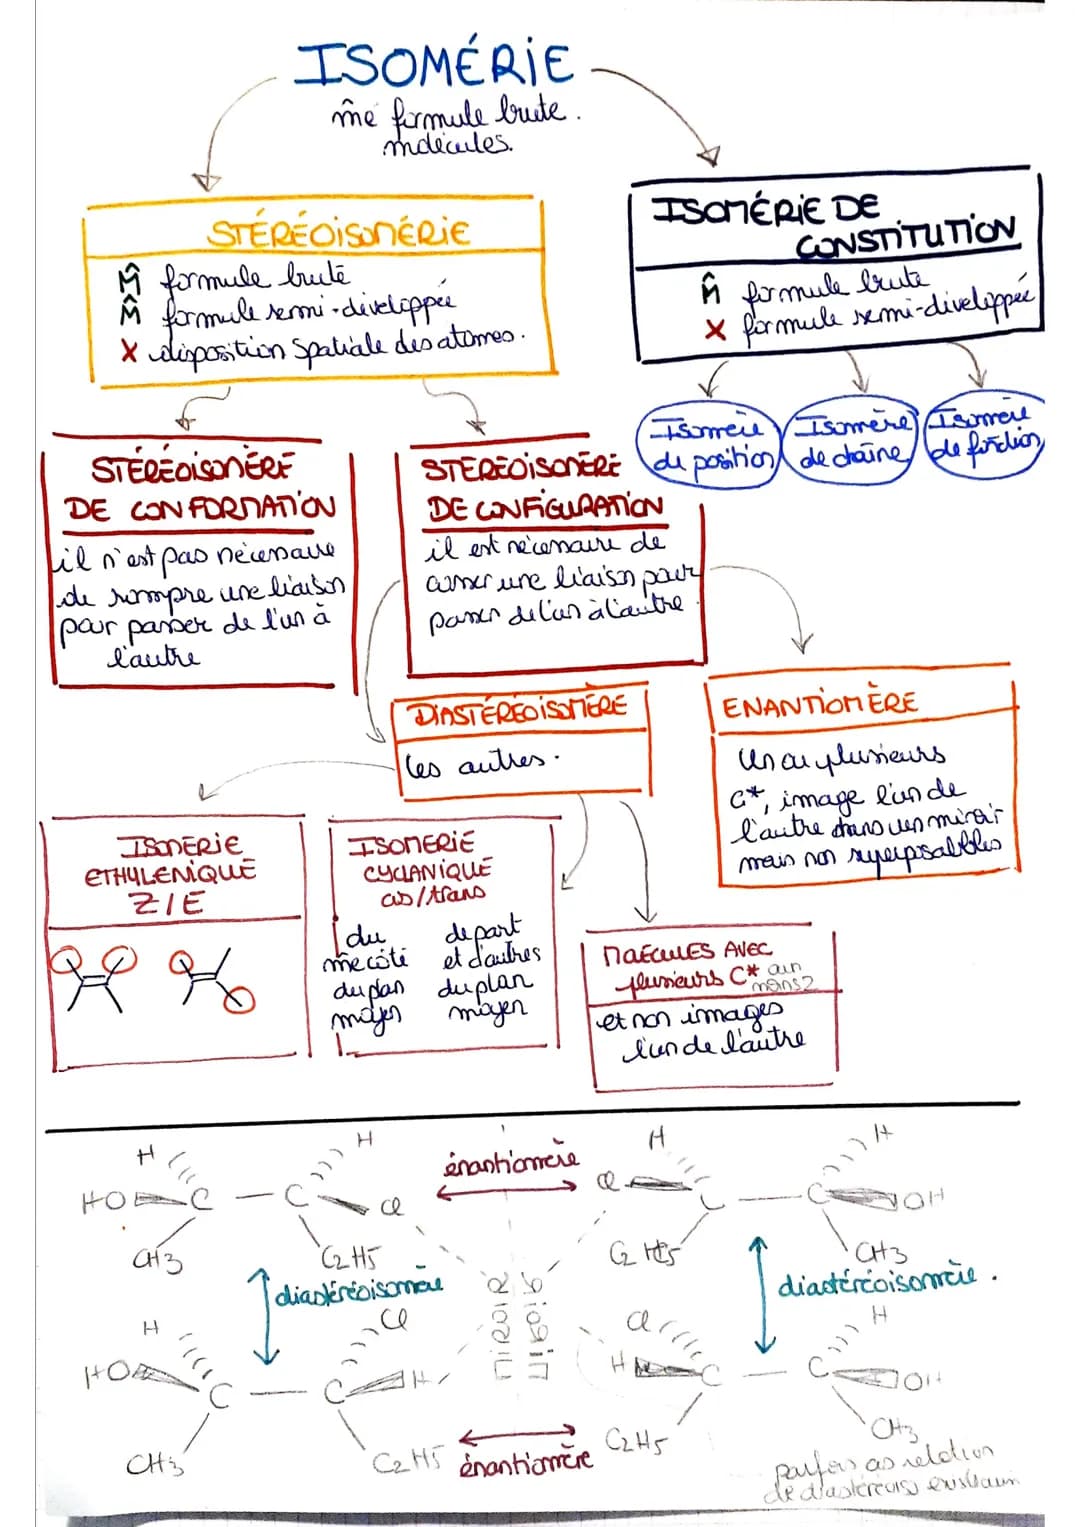 ISOMÉRIE
m̂e formule brute.
molécules.
STÉRÉOISOMÉRIE
M̂ formule brute
M̂ formule semi-développée
X disposition spatiale des atomes.
ISOMÉRIE DE
CONSTITUTION
m̂ formule brute
X formule semi-développée
Isomère
de position
Isomère
de chaîne
Isomère
de fonction
STÉRÉOISOMÈRE
DE CONFORMATION
il n'est pas nécessaire
de rompre une liaison
pour passer de l'un à
l'autre
STEREOISOMÈRE
DE CONFIGURATION
il est nécessaire de
casser une liaison pour
passer de l'un à l'autre.
DIASTÉRÉOISOMÈRE
les autres.
ENANTIOMÈRE
Un ou plusieurs
C*, image l'un de
l'autre dans un miroir
mais non superposables
ISOMERIE
ETHYLENIQUE
Z/E
ISOMERIE
CYCLANIQUE
cis/trans
du
m̂e côté
du plan
moyen
de part
et d'autres
du plan
moyen
MOLÉCULES AVEC
plusieurs C* au
moins 2
et non images
l'un de l'autre
H H énantiomère H H
HO C — C Cl Cl C — C OH
CH3 C2H5 C2H5 CH3
diastéréoisomère diastéréoisomère.
miroir
H Cl Cl H
HO C — C H H C — C OH
CH3 C2H5 énantiomère C2H5 CH3
parfois as relation
de diastéréoiso